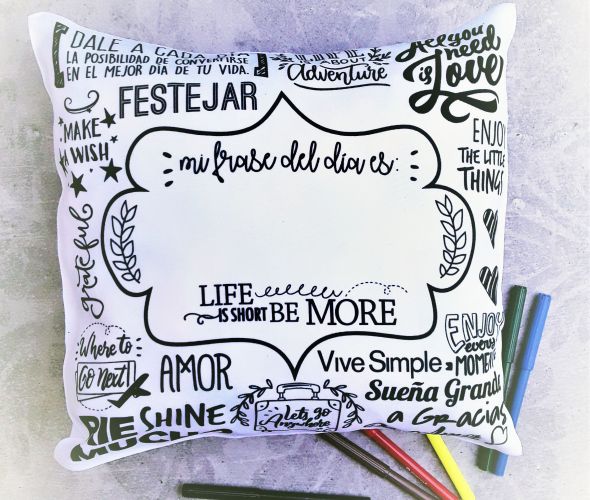 DALE A CADA DÍA
LA POSIBILIDAD DE CONVERTIRSE
EN EL MEJOR DÍA DE TU VIDA.
LIFE
ABOUT
Adventure
All you
need
is Love
FESTEJAR
MAKE
A WISH
ENJOY
THE LITTLE
THINGS
mi frase del día es:
grateful
LIFE
IS SHORT BE MORE
Where to
Go Next!
AMOR
Vive Simple
ENJOY
every
MOMENT
Sueña Grande
a Gracias
SHINE
MUCHO
Let's go
Anywhere